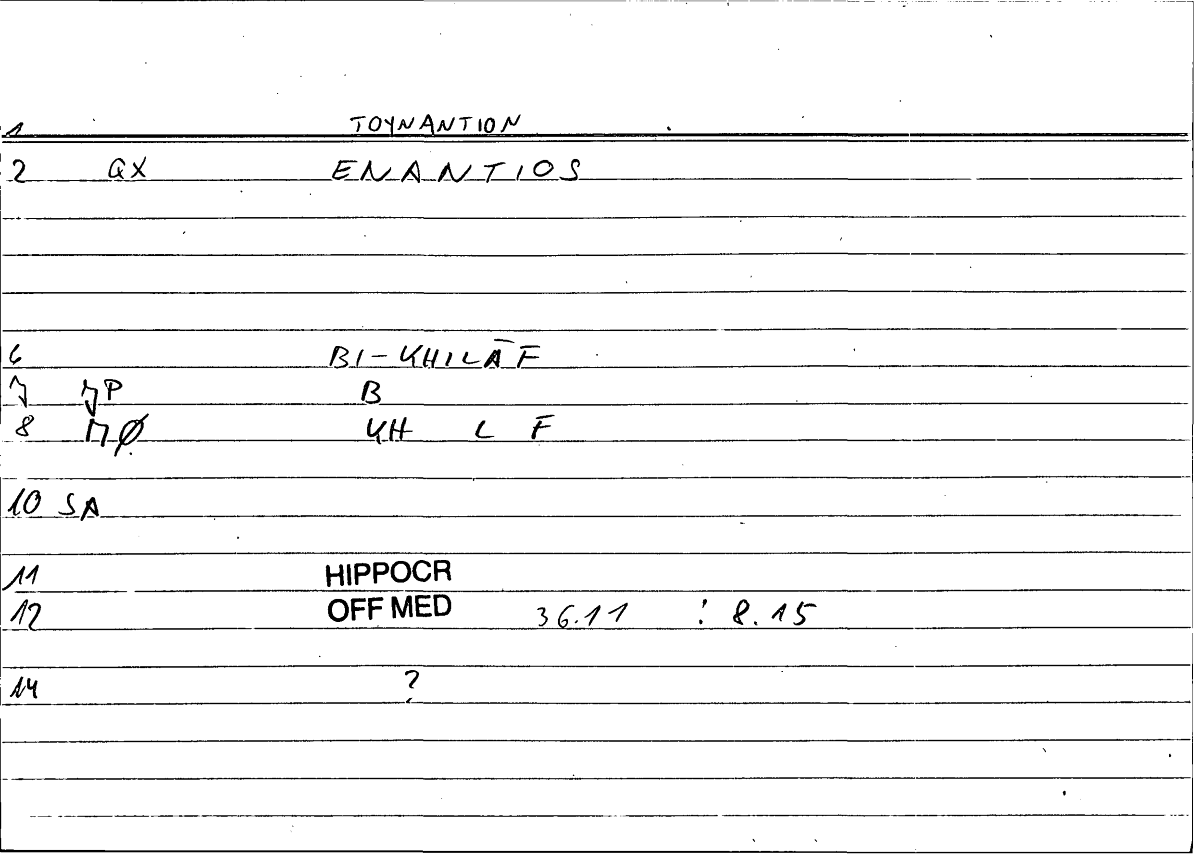 1 TOYNANTION
2 QX ENANTIOS
6 BI-KHILĀF
7 JP B
8 MØ KH L F
10 SA
11 HIPPOCR
12 OFF MED 36.11 : 8.15
14 ?